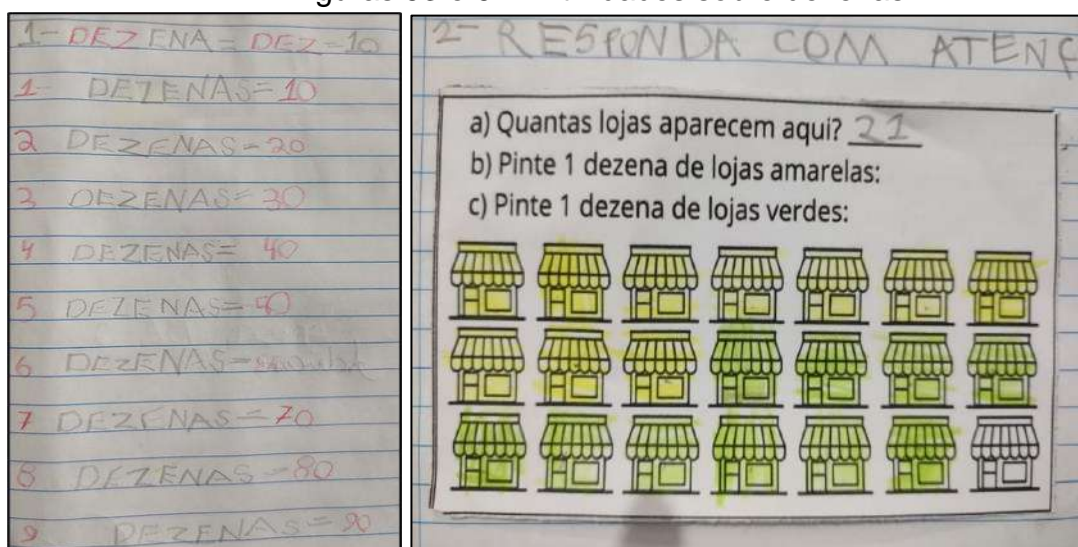 1- DEZENA = DEZ = 10
1- DEZENAS = 10
2 DEZENAS = 20
3 DEZENAS = 30
4 DEZENAS = 40
5 DEZENAS = 50
6 DEZENAS =
7 DEZENAS = 70
8 DEZENAS = 80
9 DEZENAS = 90
2- RESPONDA COM ATENÇ
a) Quantas lojas aparecem aqui? 21
b) Pinte 1 dezena de lojas amarelas:
c) Pinte 1 dezena de lojas verdes: